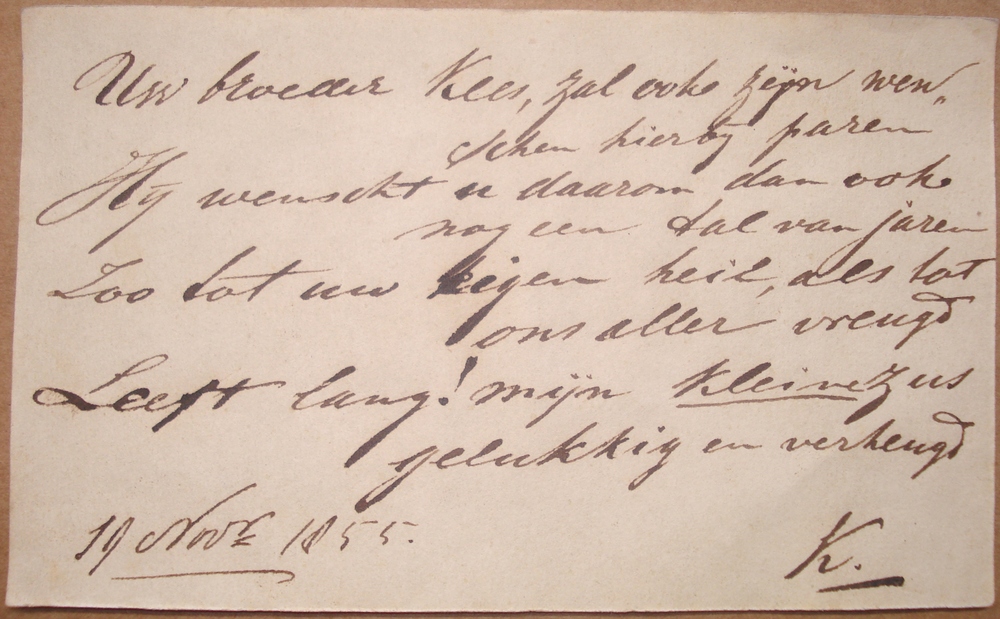 Uw broeder Kees, zal ook zijn wen„
schen hierbij paren
Hij wenscht u daarom dan ook
nog een tal van jaren
Zoo tot uw eigen heil, als tot
ons aller vreugd
Leeft lang! mijn kleine Zus
gelukkig en verheugd
19 Novr 1855.
K.